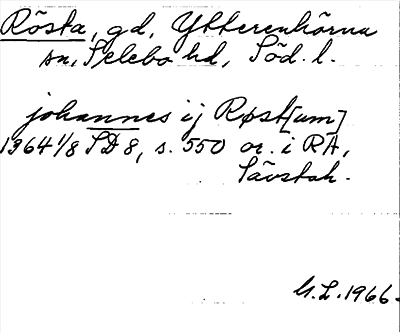 Rösta, gd, Ytterenhörna
sn, Selebo hd, Söd. l.
johannes ij Røst[um]
1364 1/8 SD 8, s. 550 or. i RA,
Sävstah.
G.L. 1966.